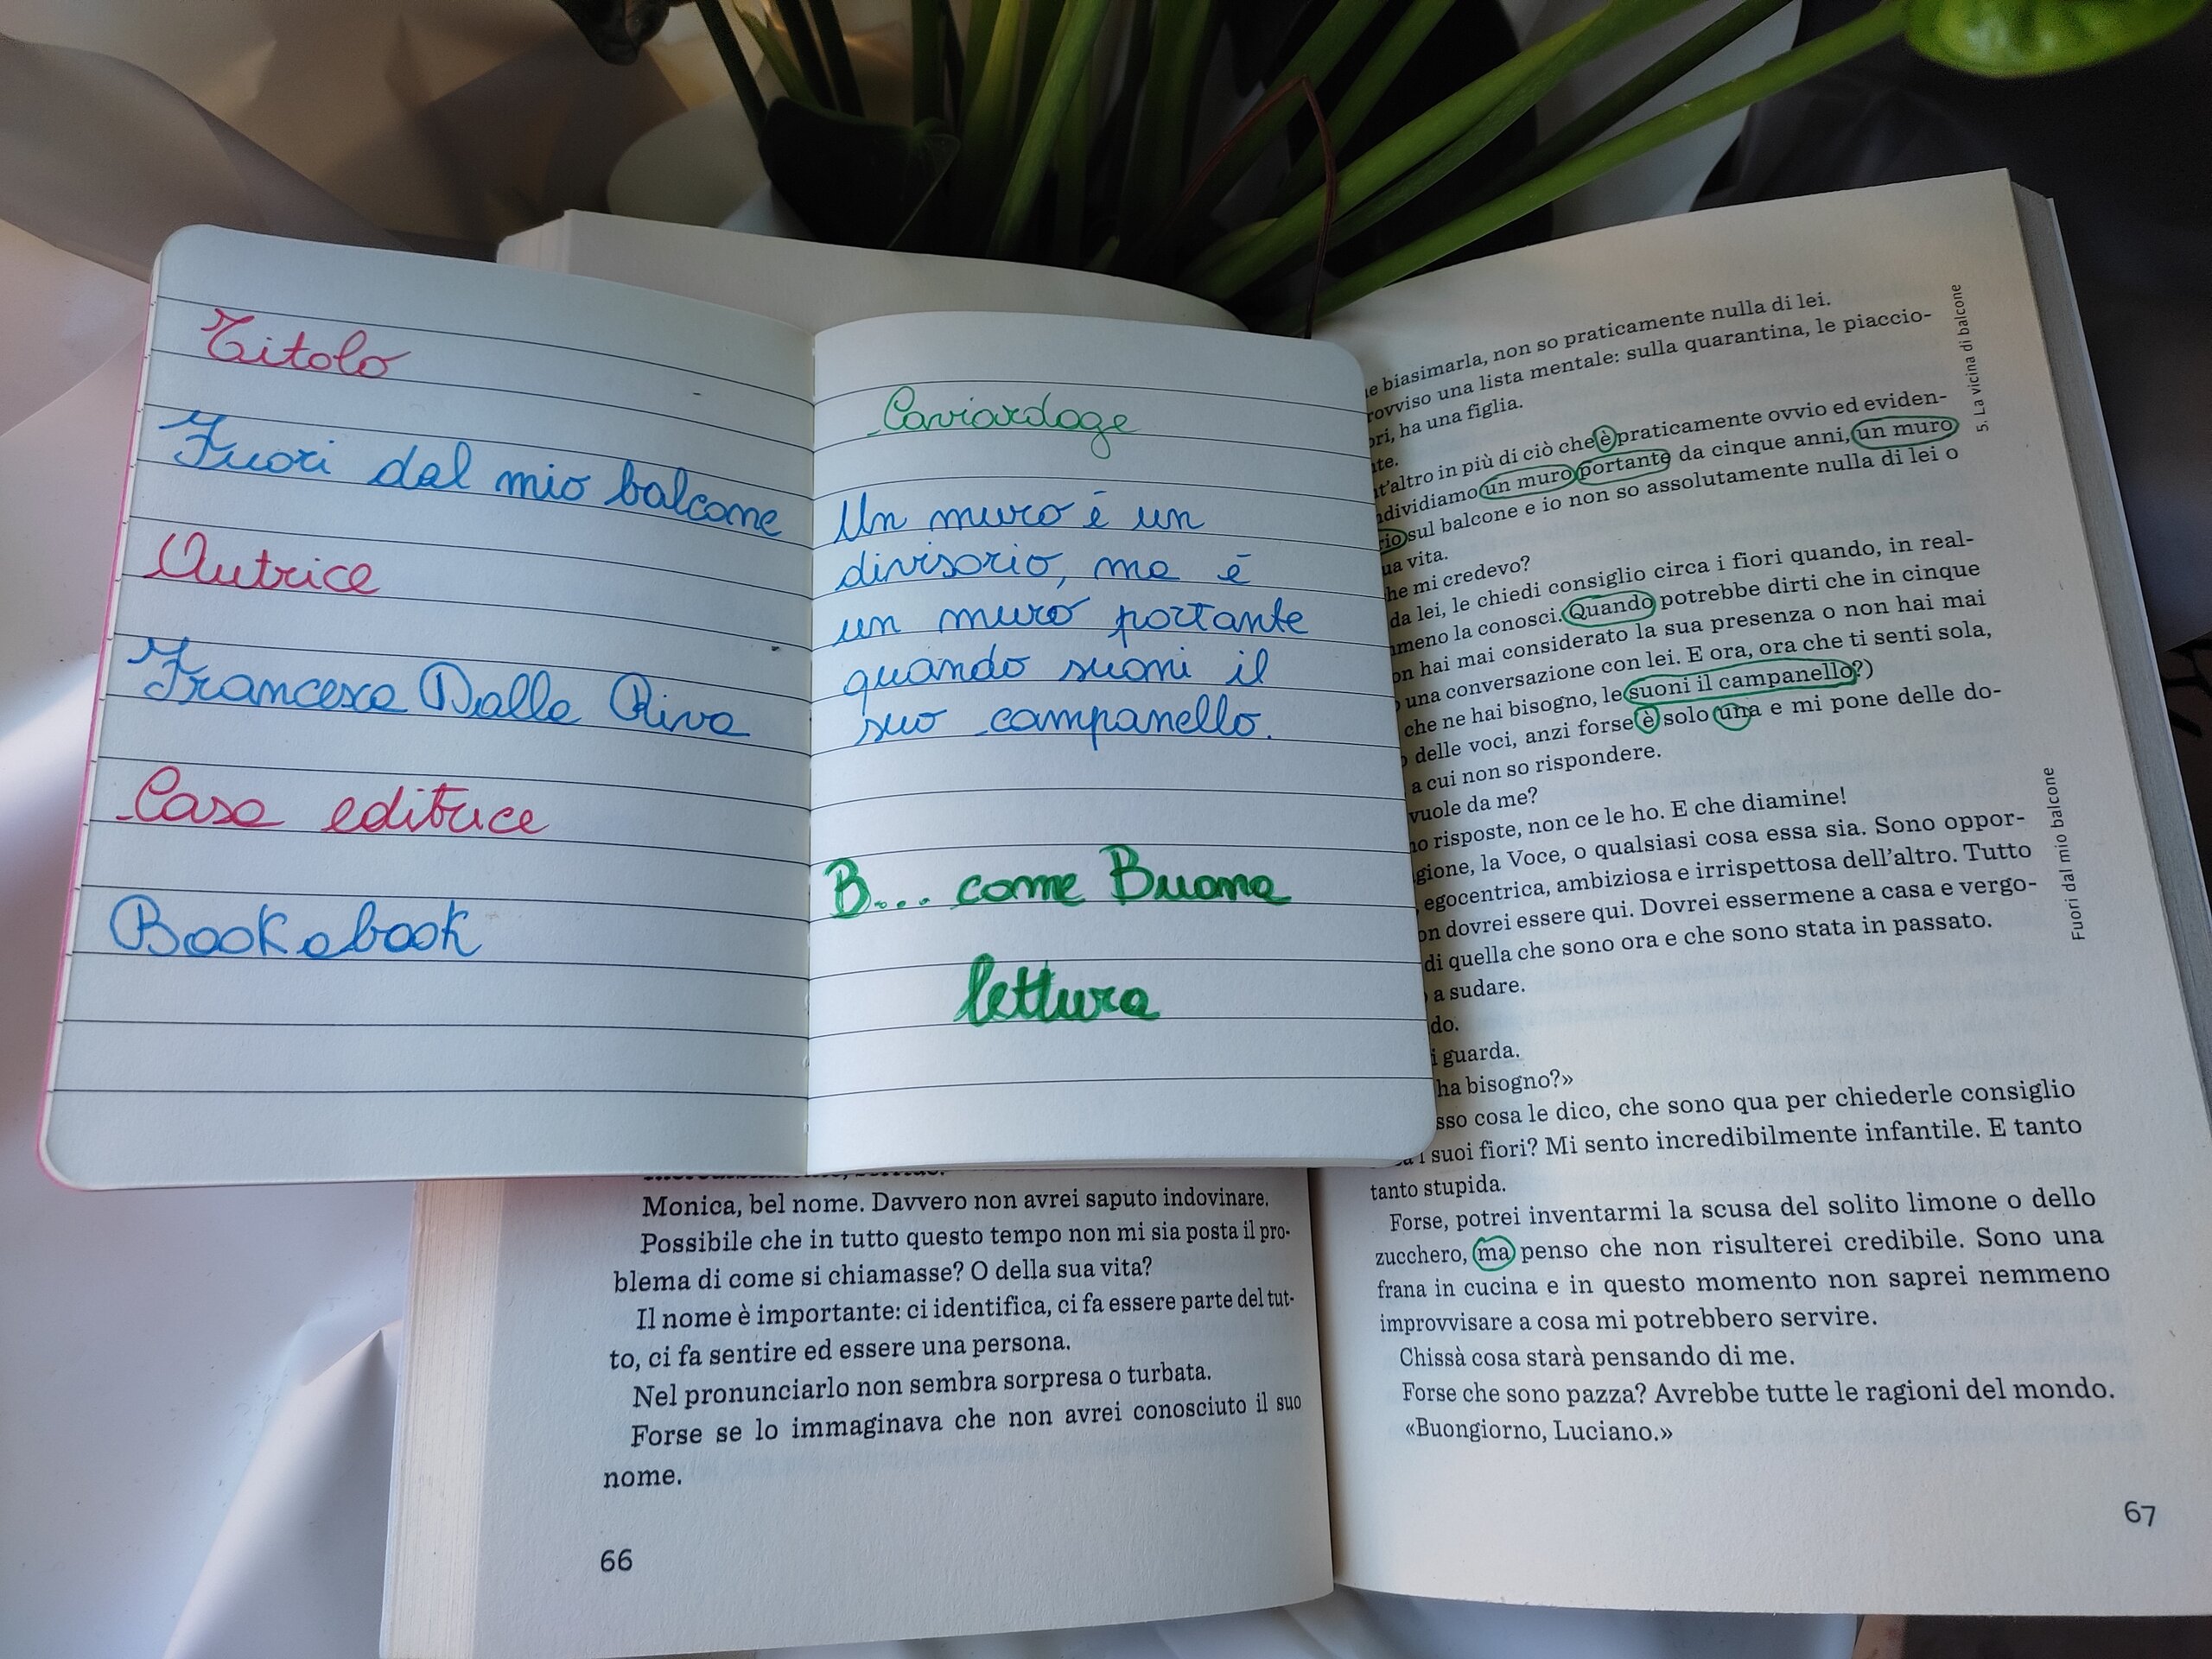 Titolo
Fuori dal mio balcone
Autrice
Francesca Dalla Riva
Casa editrice
Bookabook
Caviardage
Un muro è un
divisorio, ma è
un muro portante
quando suoni il
suo campanello.
B... come Buona
lettura
Monica, bel nome. Davvero non avrei saputo indovinare.
Possibile che in tutto questo tempo non mi sia posta il pro-
blema di come si chiamasse? O della sua vita?
Il nome è importante: ci identifica, ci fa essere parte del tut-
to, ci fa sentire ed essere una persona.
Nel pronunciarlo non sembra sorpresa o turbata.
Forse se lo immaginava che non avrei conosciuto il suo
nome.
66
biasimarla, non so praticamente nulla di lei.
una lista mentale: sulla quarantina, le piaccio-
ha una figlia.
in più di ciò che è praticamente ovvio ed eviden-
un muro portante da cinque anni, un muro
sul balcone e io non so assolutamente nulla di lei o
vita.
mi credevo?
da lei, le chiedi consiglio circa i fiori quando, in real-
la conosci. Quando potrebbe dirti che in cinque
hai mai considerato la sua presenza o non hai mai
una conversazione con lei. E ora, ora che ti senti sola,
che ne hai bisogno, le suoni il campanello?)
delle voci, anzi forse è solo una e mi pone delle do-
a cui non so rispondere.
vuole da me?
risposte, non ce le ho. E che diamine!
la Voce, o qualsiasi cosa essa sia. Sono oppor-
egocentrica, ambiziosa e irrispettosa dell'altro. Tutto
dovrei essere qui. Dovrei essermene a casa e vergo-
di quella che sono ora e che sono stata in passato.
a sudare.
guarda.
ha bisogno?»
cosa le dico, che sono qua per chiederle consiglio
suoi fiori? Mi sento incredibilmente infantile. E tanto
tanto stupida.
Forse, potrei inventarmi la scusa del solito limone o dello
zucchero, ma penso che non risulterei credibile. Sono una
frana in cucina e in questo momento non saprei nemmeno
improvvisare a cosa mi potrebbero servire.
Chissà cosa starà pensando di me.
Forse che sono pazza? Avrebbe tutte le ragioni del mondo.
«Buongiorno, Luciano.»
67
5. La vicina di balcone
Fuori dal mio balcone